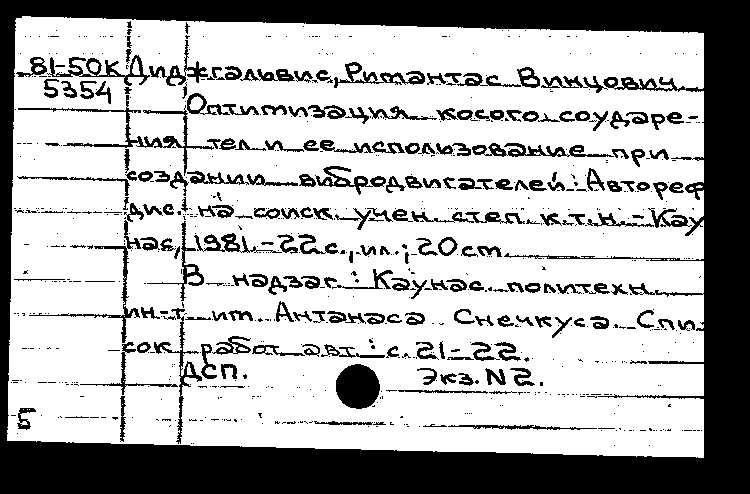 81-50к Диджгальвис, Римантас Винцович.
5354
Оптимизация косого соударе-
ния тел и ее использование при
создании вибродвигателей: Автореф
дис. на соиск. учен. степ. к.т.н. - Кау
нас, 1981. - 22 с., ил.; 20 см.
В надзаг.: Каунас. политехн.
ин-т им. Антанаса Снечкуса. Спи-
сок работ авт.: с. 21-22.
ДСП. Экз. N 2.
5